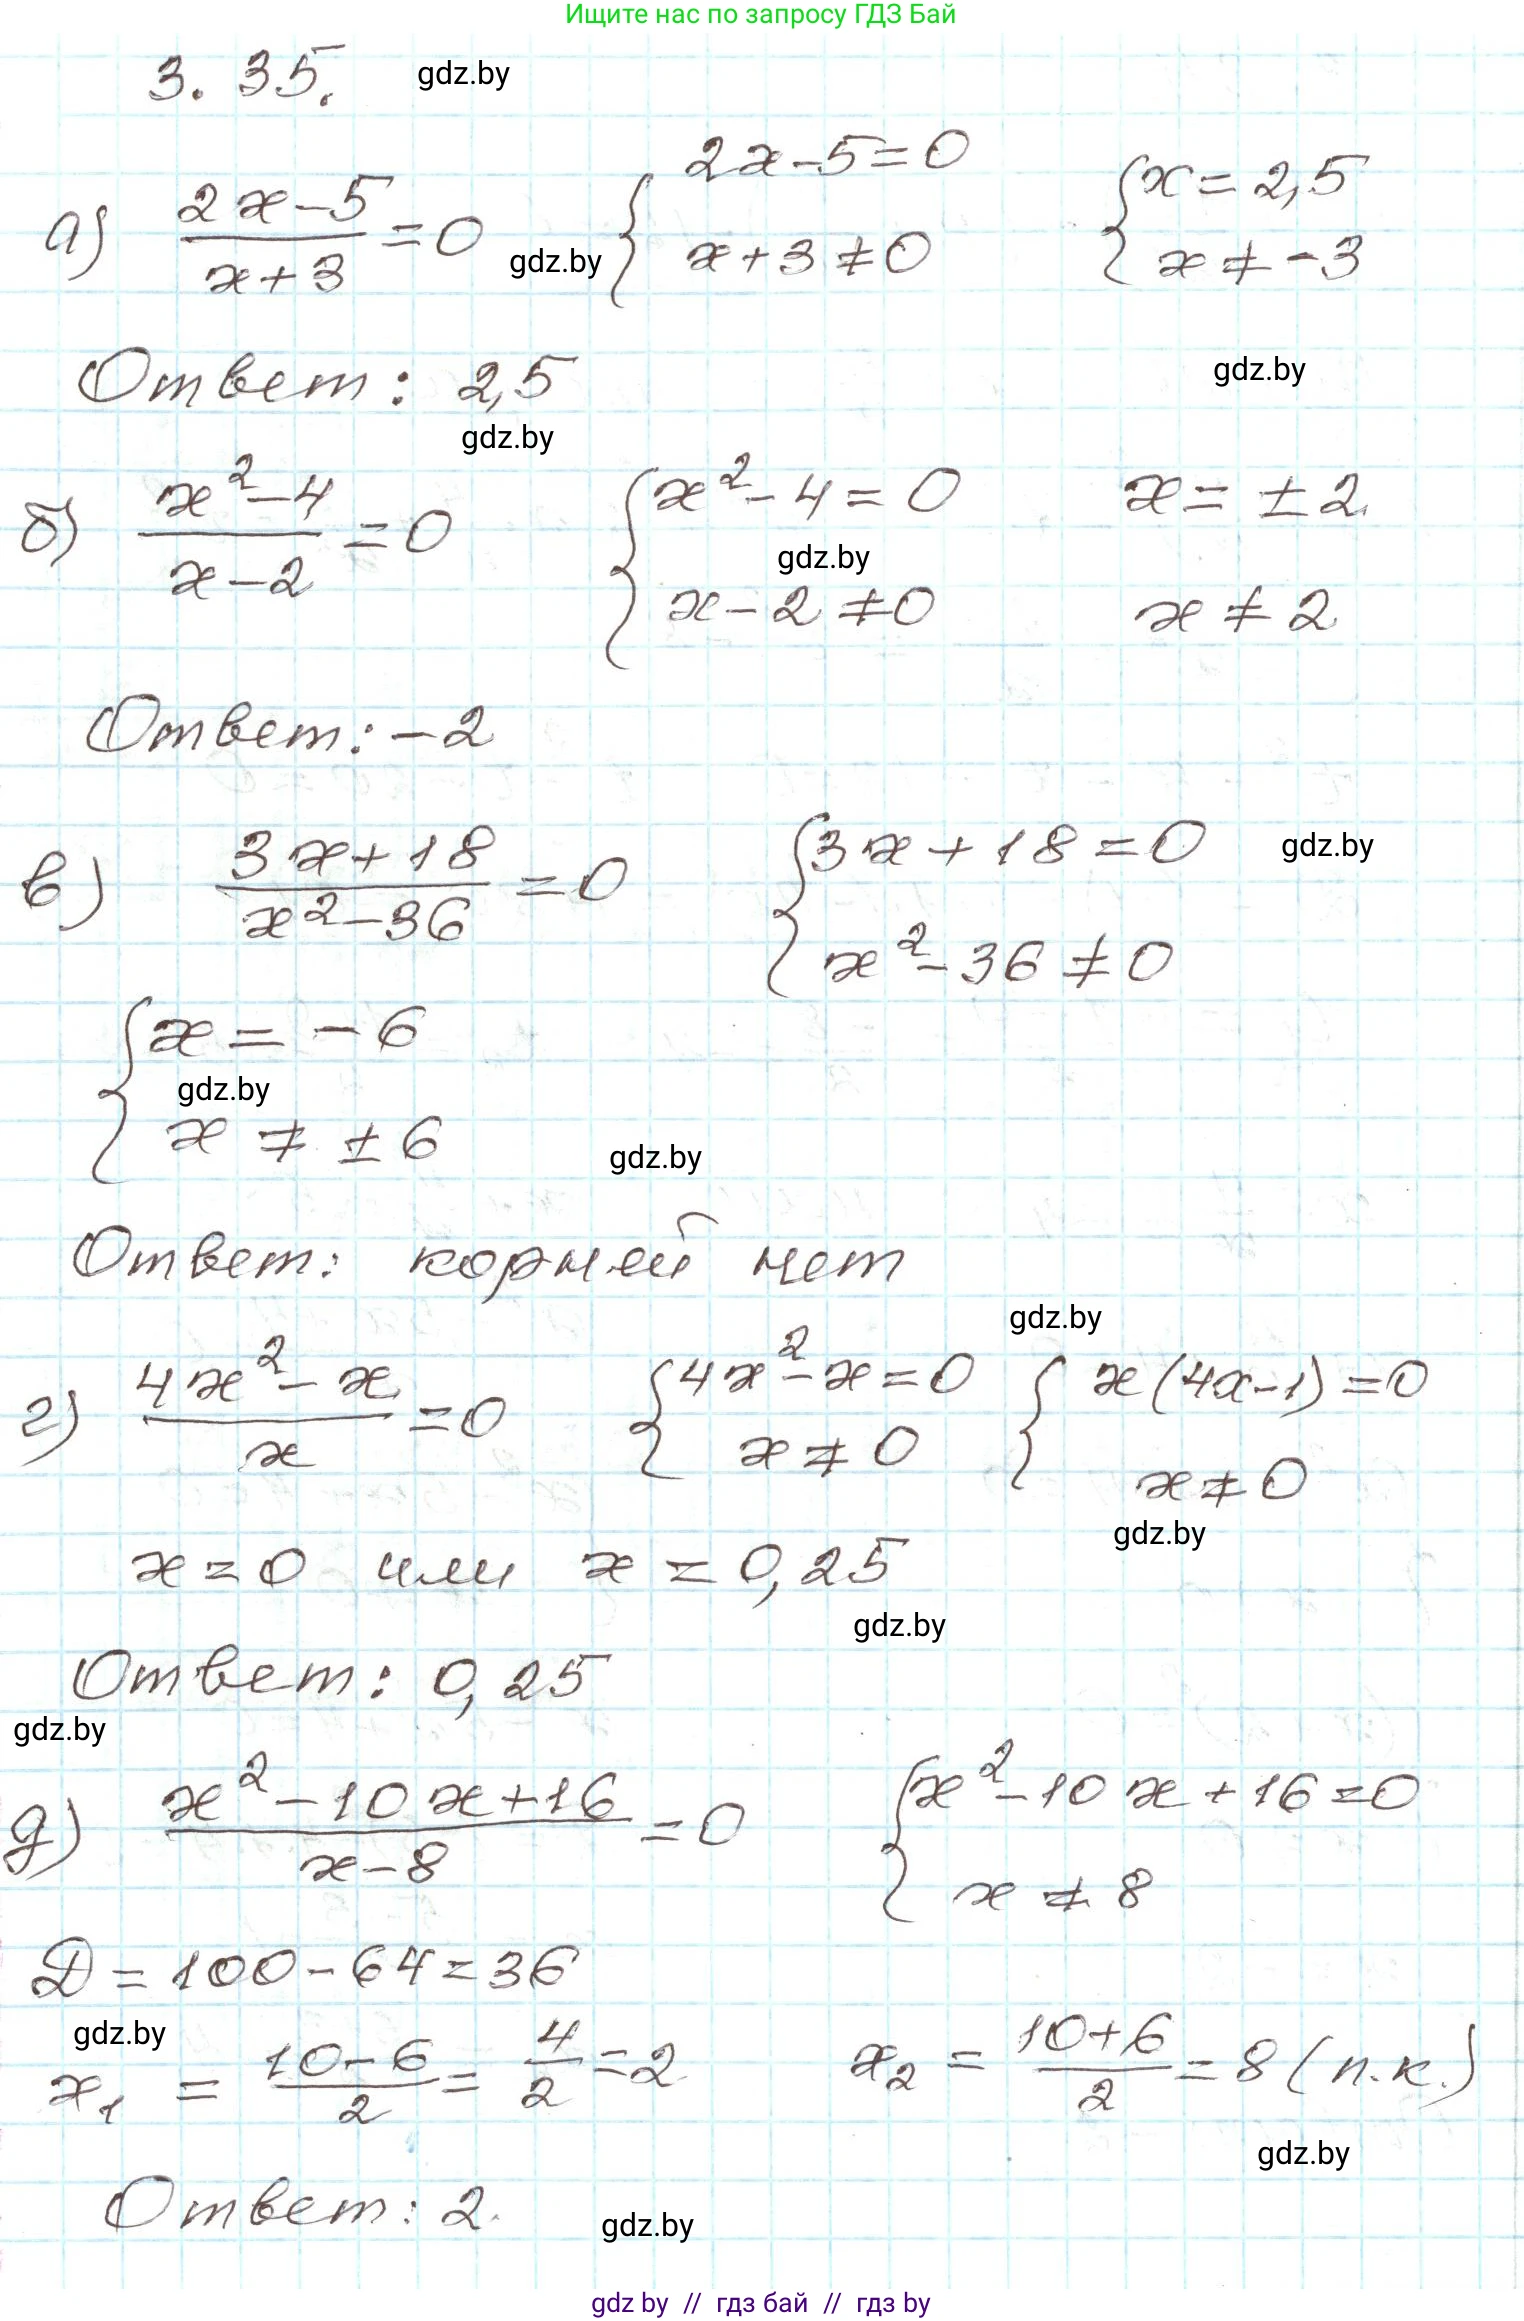 Ищите нас по запросу ГДЗ Бай
3.35. gdz.by
а) (2x-5)/(x+3) = 0 gdz.by { 2x-5=0 { x=2,5
x+3≠0 x≠-3
Ответ: 2,5 gdz.by
gdz.by
б) (x²-4)/(x-2) = 0 { x²-4=0 x=±2
gdz.by
x-2≠0 x≠2
Ответ: -2
в) (3x+18)/(x²-36) = 0 { 3x+18=0 gdz.by
x²-36≠0
{ x=-6
gdz.by
x≠±6
gdz.by
Ответ: корней нет
gdz.by
г) (4x²-x)/x = 0 { 4x²-x=0 { x(4x-1)=0
x≠0 x≠0
gdz.by
x=0 или x=0,25
gdz.by
Ответ: 0,25
gdz.by
д) (x²-10x+16)/(x-8) = 0 { x²-10x+16=0
x≠8
D=100-64=36
gdz.by
x₁ = (10-6)/2 = 4/2 = 2 x₂ = (10+6)/2 = 8 (п.к.)
gdz.by
Ответ: 2.
gdz.by
gdz by // гдз бай // гдз by